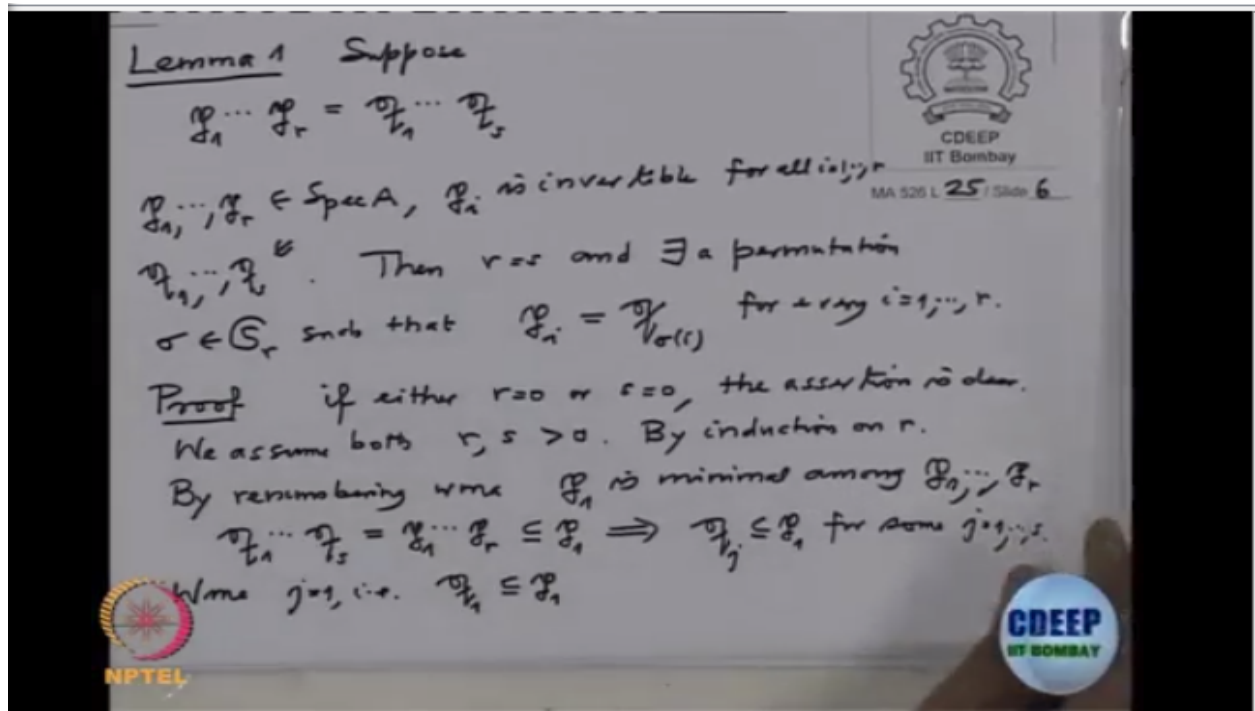 Lemma 1 Suppose
𝔭₁ ⋯ 𝔭ᵣ = 𝔮₁ ⋯ 𝔮ₛ
𝔭₁, ⋯, 𝔭ᵣ ∈ Spec A, 𝔭ᵢ is invertible for all i=1,⋯,r
𝔮₁, ⋯, 𝔮ₛ . Then r=s and ∃ a permutation
σ ∈ 𝔖ᵣ such that 𝔭ᵢ = 𝔮_σ(i) for every i=1,⋯,r.
Proof if either r=0 or s=0, the assertion is clear.
We assume both r, s > 0. By induction on r.
By renumbering wma 𝔭₁ is minimal among 𝔭₁,⋯,𝔭ᵣ
𝔮₁ ⋯ 𝔮ₛ = 𝔭₁ ⋯ 𝔭ᵣ ⊆ 𝔭₁ ⟹ 𝔮ⱼ ⊆ 𝔭₁ for some j=1,⋯,s.
Wma j=1, i.e. 𝔮₁ ⊆ 𝔭₁
CDEEP
IIT Bombay
MA 526 L 25 / Slide 6
NPTEL
CDEEP
IIT BOMBAY